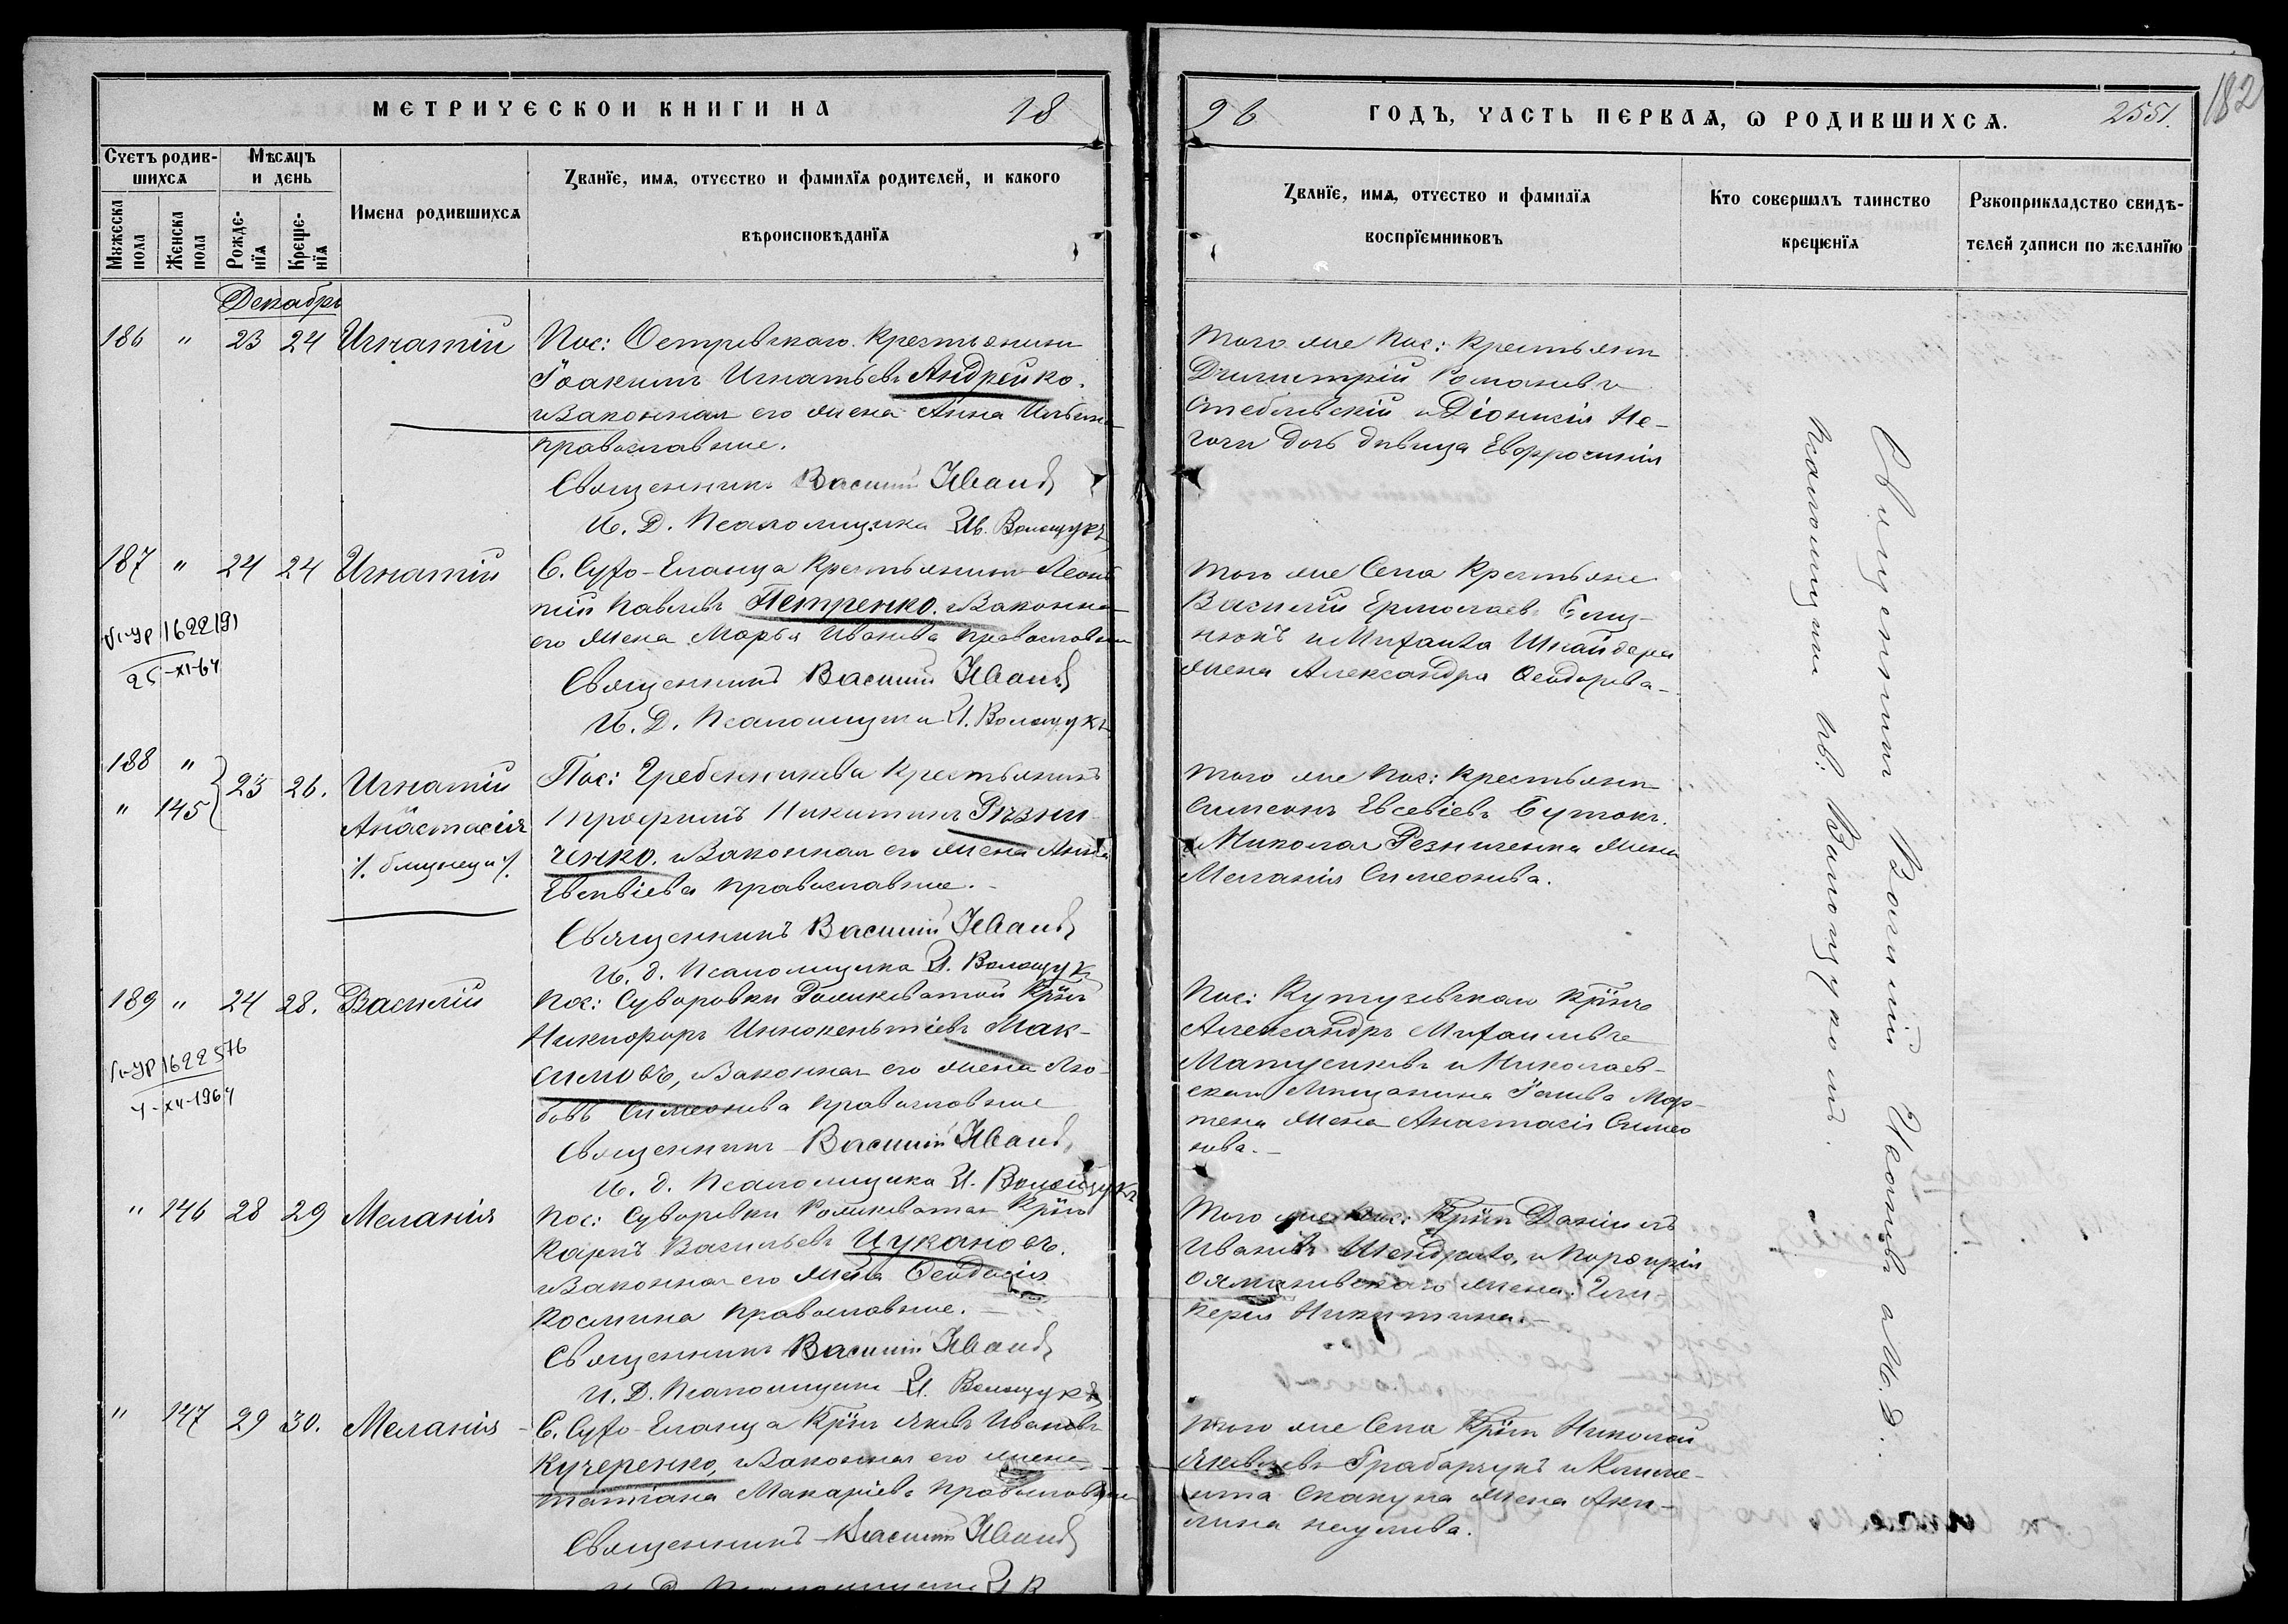 МЕТРИЧЕСКОЙ КНИГИ НА 18
96 ГОДЪ, ЧАСТЬ ПЕРВАЯ, Ѡ РОДИВШИХСЯ. 2551. 182
Счетъ родив-
шихся
Мѣсяцъ
и день
Мꙋжеска
пола
Женска
пола
Рожде-
нїя
Креще-
нїя
Имена родившихся
Званїе, имя, отчество и фамилїя родителей, и какого
вѣроисповѣданїя
Званїе, имя, отчество и фамилїя
воспрїемниковъ
Кто совершалъ таинство
крещенїя
Рꙋкоприкладство свидѣ-
телей записи по желанїю
Декабрь
186 " 23 24 Игнатій
Пос: Островскаго Крестьянинъ
Іоакимъ Игнатьевъ Андрейко.
и Законная его жена Анна Ильина
православные.
Священникъ Василій Ивановъ
И. Д. Псаломщика Ив. Волощукъ
Того же Пос: Крестьянинъ
Димитрій Романовъ
Стеблевскій и Діонисія Не-
гочи дочь дѣвица Евфросинія
187 " 24 24 Игнатій
1622191
25-XI-64
С. Сухо-Еланца Крестьянинъ Леон-
тій Павловъ Петренко. и Законная
его жена Марья Иванова православные
Священникъ Василій Ивановъ
И. Д. Псаломщика И. Волощукъ
Того же Села Крестьяне
Василій Ермолаевъ Близ-
нюкъ и Михаила Шнайдера
жена Александра Ѳеодорова
188 "
" 145
23 26. Игнатій
Анастасія
·/. близнецы ·/.
Пос: Гребенникова Крестьянинъ
Трофимъ Никитинъ Рѣзни-
ченко. и Законная его жена Анна
Евсевіева православные.
Священникъ Василій Ивановъ
И. д. Псаломщика И. Волощукъ
Того же Пос: Крестьянинъ
Симеонъ Евсевіевъ Бутокъ.
и Николая Резниченка жена
Меланія Симеонова.
189 " 24 28. Василій
1622576
4-XII-1964
Пос: Суворовки Голиковатой Кр̃инъ
Никифоръ Иннокентіевъ Мак-
симовъ, и Законная его жена Лю-
бовь Симеонова православные
Священникъ Василій Ивановъ
И. д. Псаломщика И. Волощукъ
Пос: Кутузовскаго Кр̃инъ
Александръ Михаиловъ
Матусиковъ и Николаев-
скаго Мѣщанина Іакова Мар-
тена жена Анастасія Симео-
нова.
" 146 28 29 Меланія
Пос: Суворовки Голиковатая Кр̃инъ
Карпъ Васильевъ Цукановъ.
и Законная его жена Ѳеодосія
Космина православные.
Священникъ Василій Ивановъ
И. Д. Псаломщика И. Волощукъ
Того же Пос: Кр̃инъ Даніилъ
Ивановъ и Порфирія
жена Гли-
керія Никитина.
" 147 29 30. Меланія
С. Сухо-Еланца Кр̃инъ Яковъ Ивановъ
Кучеренко, и Законная его жена
Татіана Макаріева Православные
Священникъ Василій Ивановъ
Того же Села Кр̃инъ Николай
Яковлевъ Грабарчукъ и Климе-
нта Скакуна жена Аки-
лина
Священникъ Василій Ивановъ и И. Д.
псаломщика Ив: Волощукомъ.